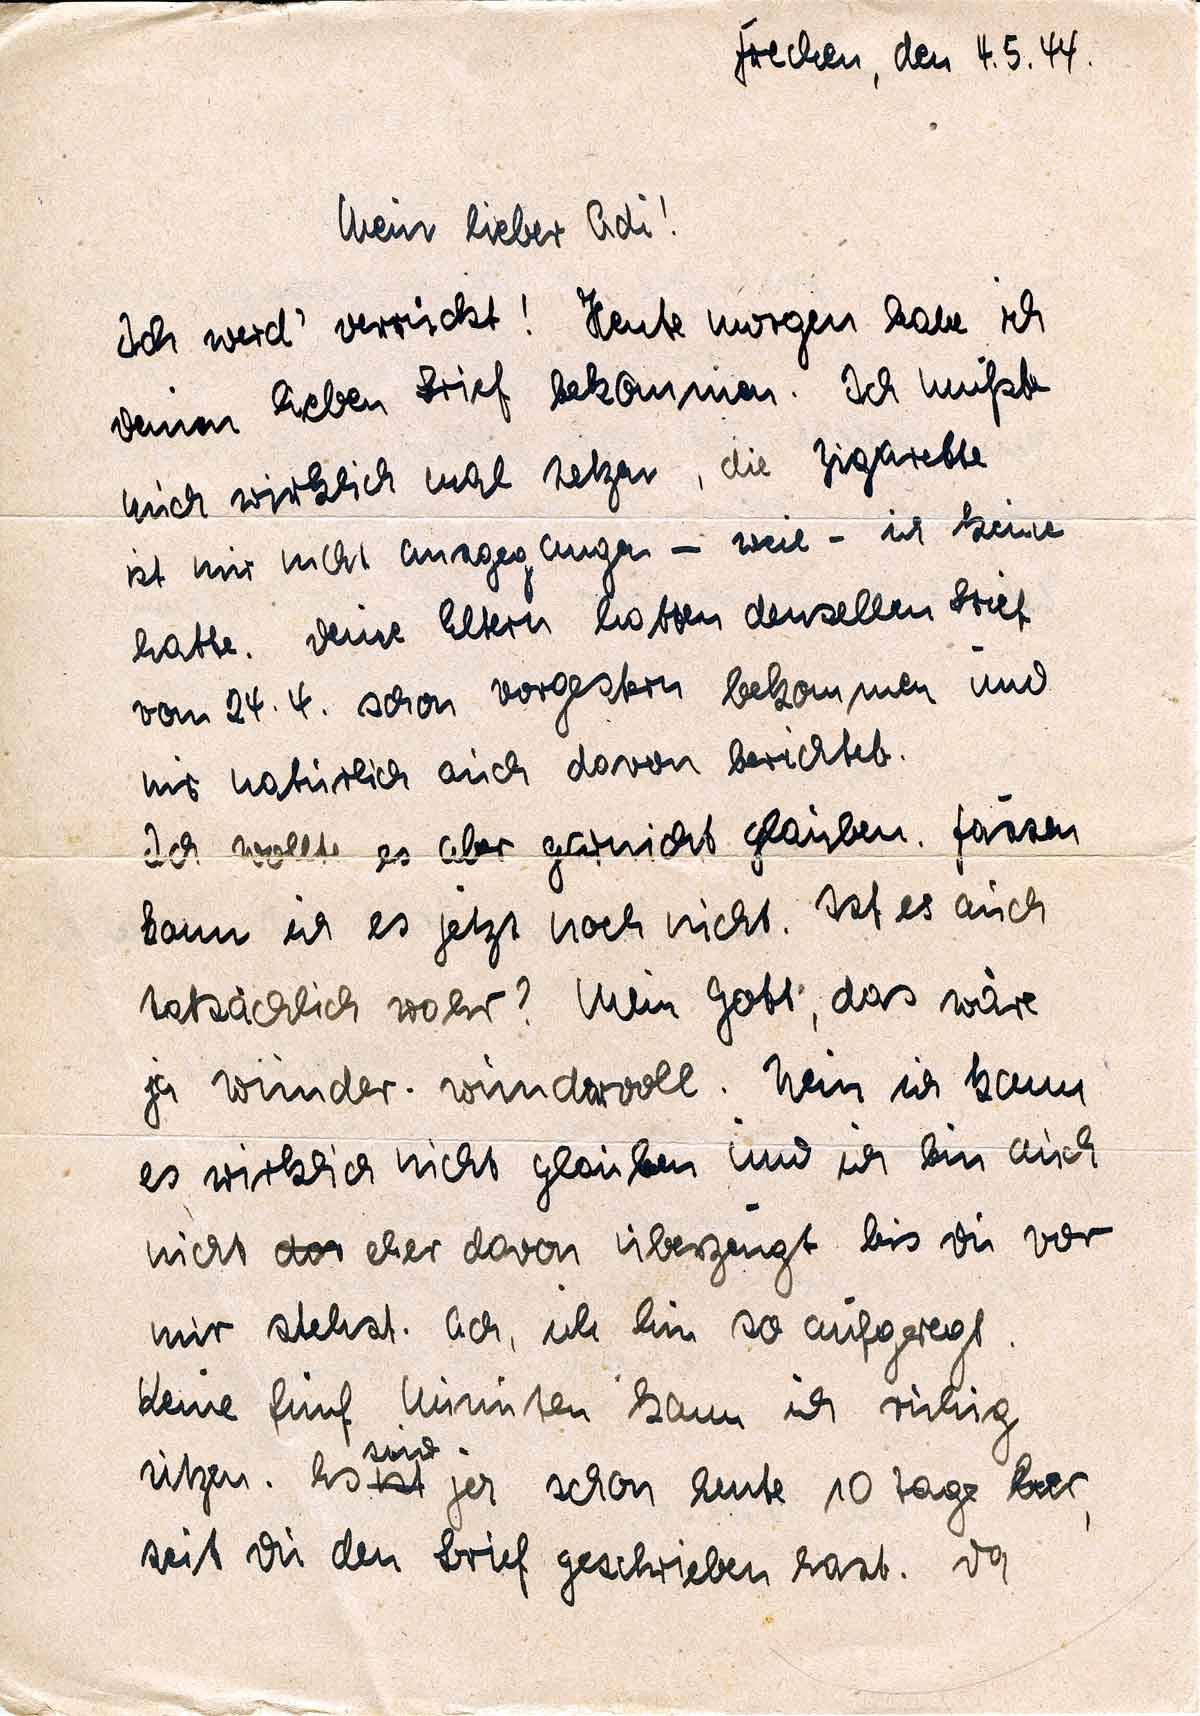 Frechen, den 4.5.44.
Mein lieber Adi!
Ich werd' verrückt! Heute morgen habe ich
deinen lieben Brief bekommen. Ich mußte
mich wirklich mal setzen, die Zigarette
ist mir nicht ausgegangen – weil – ich keine
hatte. Deine Eltern hatten denselben Brief
vom 24.4. schon vorgestern bekommen und
mir natürlich auch davon berichtet.
Ich wollte es aber garnicht glauben. Fassen
kann ich es jetzt noch nicht. Ist es auch
tatsächlich wahr? Mein Gott, das wäre
ja wunder-wundervoll. Nein ich kann
es wirklich nicht glauben und ich bin auch
nicht eher davon überzeugt bis du vor
mir stehst. Ach, ich bin so aufgeregt.
Keine fünf Minuten kann ich ruhig
sitzen. Es sind ja schon heute 10 Tage her,
seit Du den Brief geschrieben hast. Da